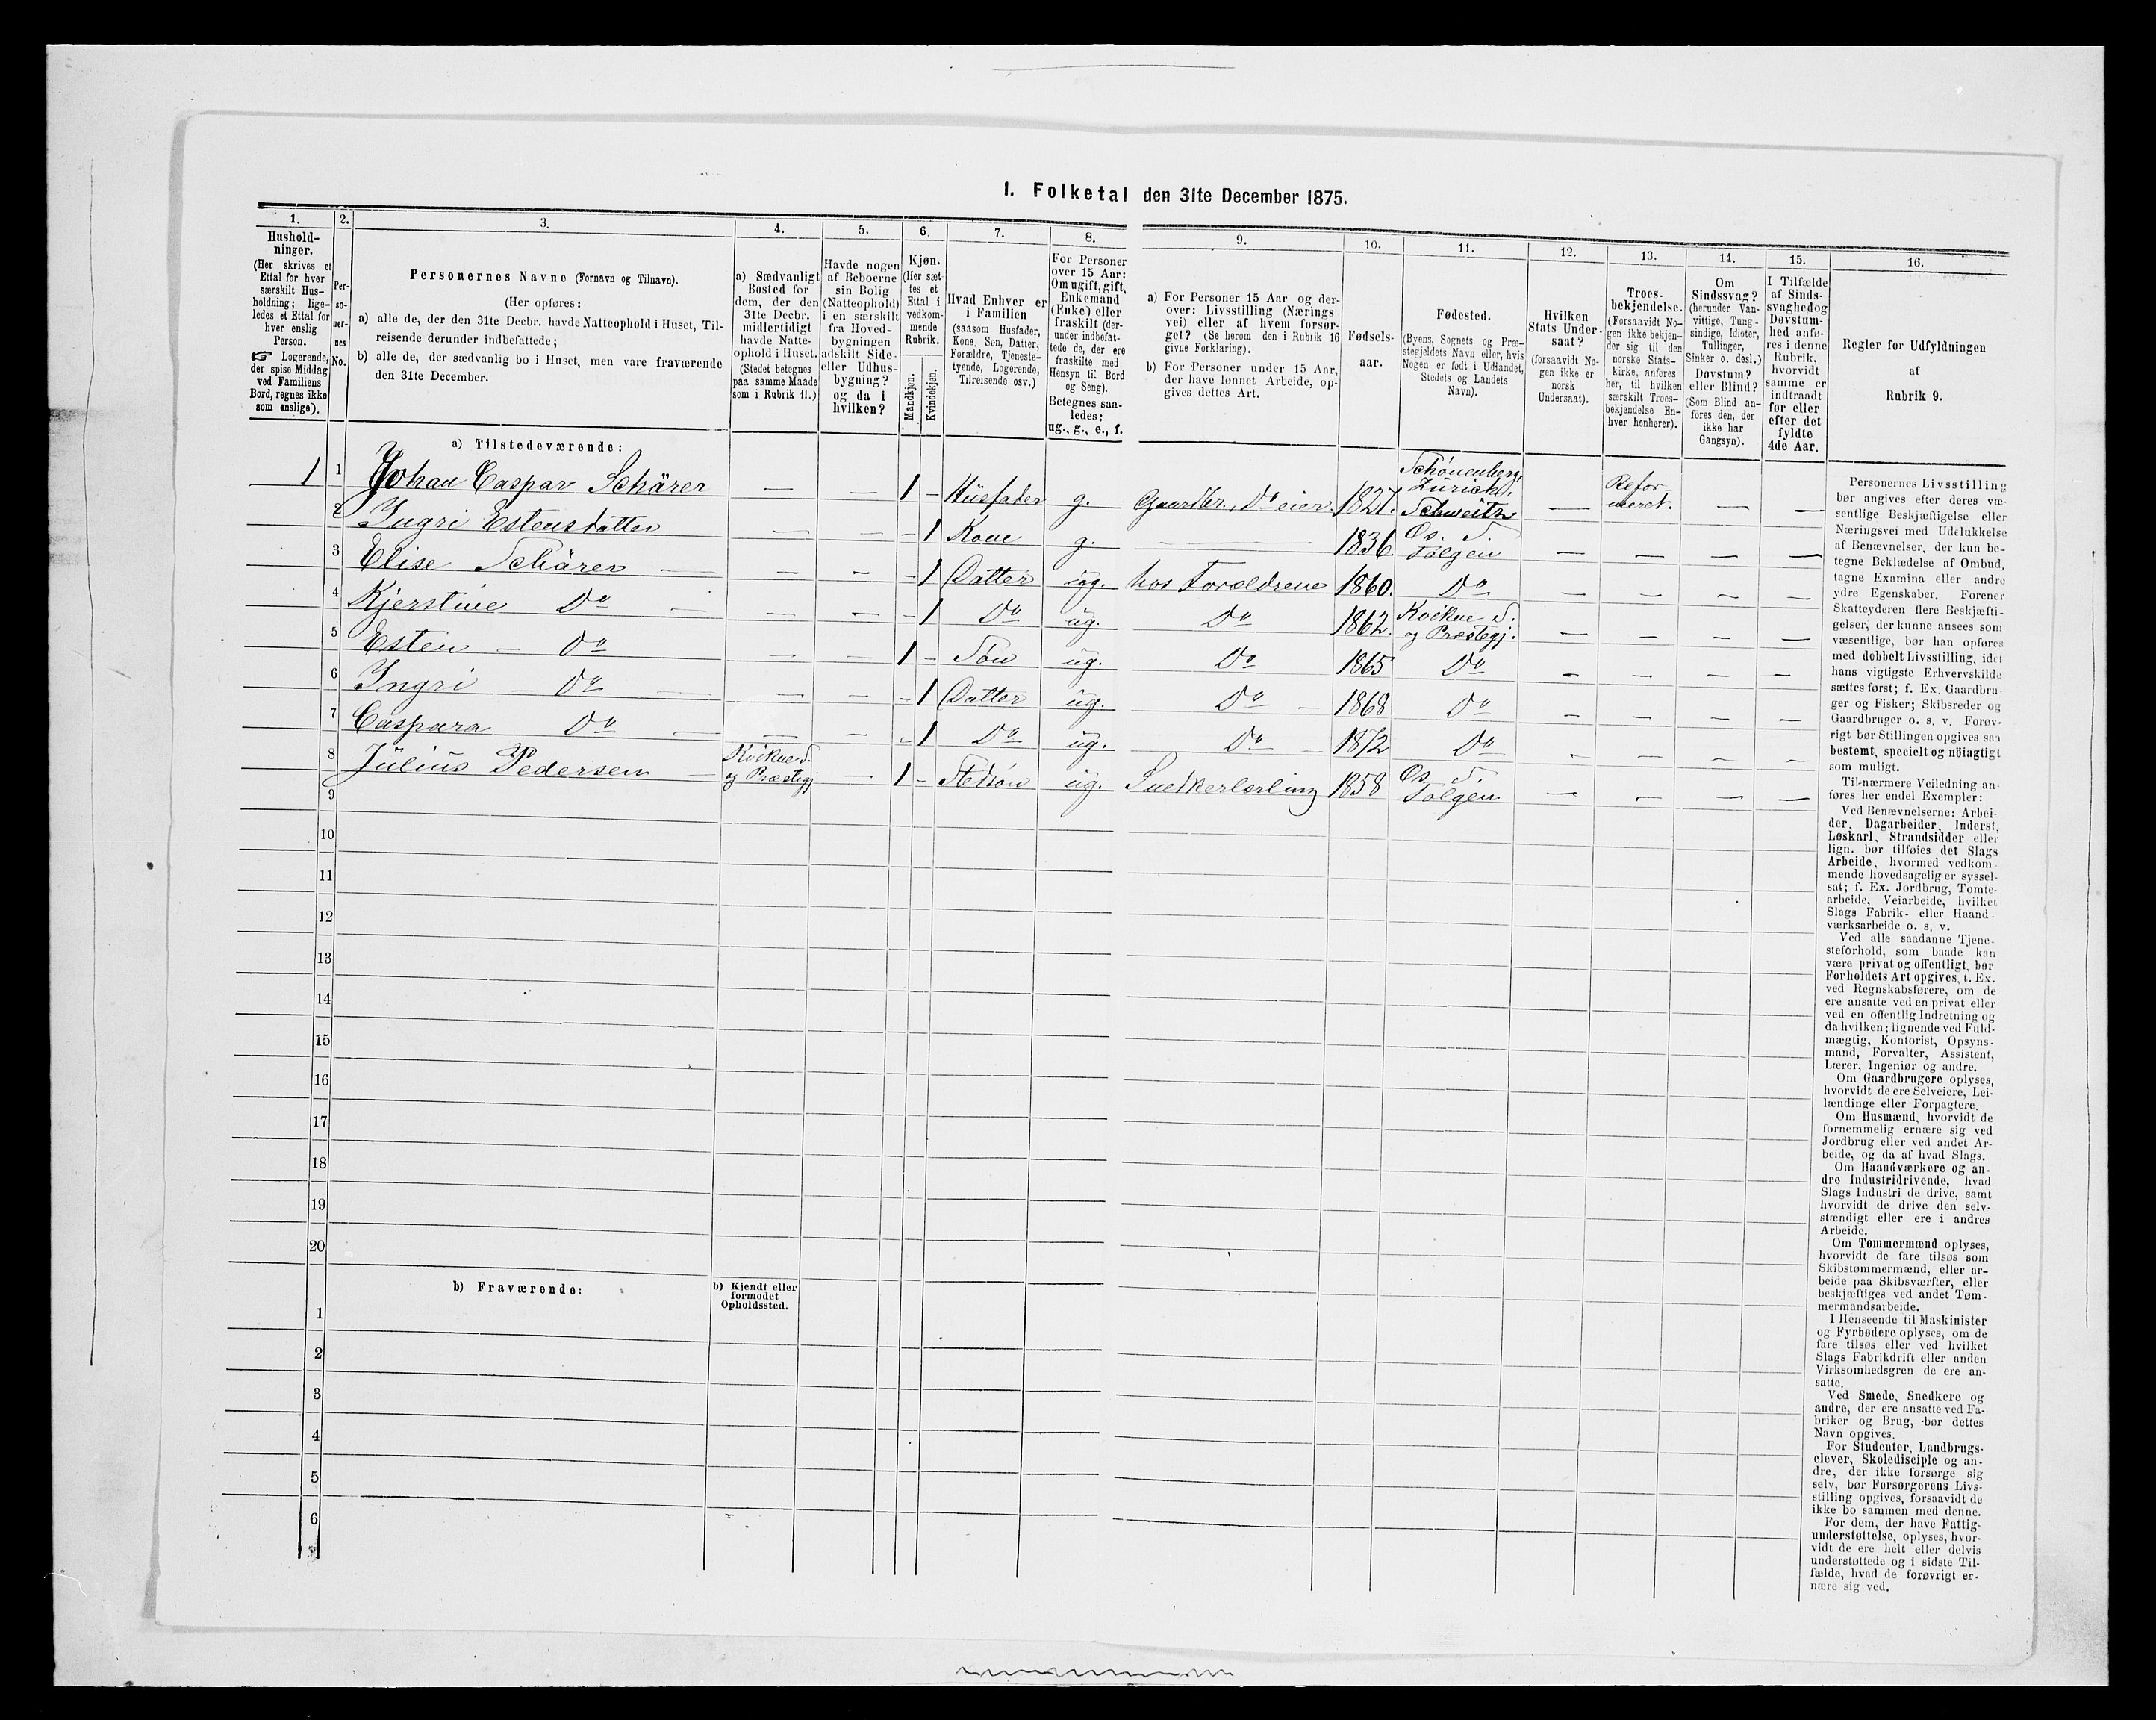 1. Folketal den 31te December 1875.
1.
Hushold-
ninger.
(Her skrives et
Ettal for hver
særskilt Hus-
holdning; lige-
ledes et Ettal for
hver enslig
Person.
☞ Logerende,
der spise Middag
ved Familiens
Bord, regnes ikke
som enslige).
2.
Per-
so-
ner-
nes
No.
3.
Personernes Navne (Fornavn og Tilnavn).
(Her opføres:
a) alle de, der den 31te Decbr. havde Natteophold i Huset, Til-
reisende derunder indbefattede;
b) alle de, der sædvanlig bo i Huset, men vare fraværende
den 31te December.
4.
a) Sædvanligt
Bosted for
dem, der den
31te Decbr.
midlertidigt
havde Natte-
ophold i Huset.
(Stedet betegnes
paa samme Maade
som i Rubrik 11.)
5.
Havde nogen
af Beboerne
sin Bolig
(Natteophold)
i en særskilt
fra Hoved-
bygningen
adskilt Side-
eller Udhus-
bygning?
og da i
hvilken?
6.
Kjøn.
(Her sæt-
tes et
Ettal i
vedkom-
mende
Rubrik.
Mandkjøn.
Kvindekjøn.
7.
Hvad Enhver er
i Familien
(saasom Husfader,
Kone, Søn, Datter,
Forældre, Tjeneste-
tyende, Logerende,
Tilreisende osv.)
8.
For Personer
over 15 Aar:
Om ugift, gift,
Enkemand
(Enke) eller
fraskilt (der-
under indbefat-
tede de, der ere
fraskilte med
Hensyn til Bord
og Seng).
Betegnes saa-
ledes:
ug., g., e., f.
9.
a) For Personer 15 Aar og der-
over: Livsstilling (Nærings
vei) eller af hvem forsør-
get? (Se herom den i Rubrik 16
givne Forklaring).
b) For Personer under 15 Aar,
der have lønnet Arbeide, op-
gives dettes Art.
10.
Fødsels-
aar.
11.
Fødested.
(Byens, Sognets og Præ-
stegjeldets Navn eller, hvis
Nogen er født i Udlandet,
Stedets og Landets
Navn).
12.
Hvilken
Stats Under-
saat?
(forsaavidt No-
gen ikke er
norsk
Undersaat).
13.
Troes-
bekjendelse.
(Forsaavidt No-
gen ikke bekjen-
der sig til den
norske Stats-
kirke, anføres
her, til hvilken
særskilt Troes-
bekjendelse En-
hver henhører).
14.
Om
Sindssvag?
(herunder Van-
vittige, Tung-
sindige, Idioter,
Tullinger,
Sinker o. desl.)
Døvstum?
eller Blind?
(Som Blind an-
føres den, der
ikke har
Gangsyn).
15.
I Tilfælde
af Sinds-
svaghed og
Døvstum-
hed anfø-
res i denne
Rubrik,
hvorvidt
samme er
indtraadt
før eller
efter det
fyldte
4de Aar.
16.
Regler for Udfyldningen
af
Rubrik 9.
a) Tilstedeværende:
1 1 Johan Caspar Schärer — — 1 – Husfader g. Gaardbr., Do eier. 1827. Schönenberg, Zürich, Schweitz — Refor-meret. — —
2 Ingri Estensdatter — — – 1 Kone g. — 1836. Øs. S. Tolgen — — — —
3 Elise Schärer — — – 1 Datter ug. hos Forældrene 1860. Do — — — —
4 Kjerstine Do — — – 1 Do ug. Do 1862. Koikne S. og Præstegj. — — — —
5 Esten Do — — 1 – Søn ug. Do 1865 Do — — — —
6 Ingri Do — — – 1 Datter ug. Do 1868 Do — — — —
7 Caspara Do — — – 1 Do ug. Do 1872 Do — — — —
8 Julius Pedersen Koikne S. og Præstegj — 1 – Stedsøn ug. Snedkerlærling 1858 Øs. S. Tolgen — — — —
9
10
11
12
13
14
15
16
17
18
19
20
b) Fraværende:
b) Kjendt eller
formodet
Opholdssted.
1
2
3
4
5
6
Personernes Livsstilling
bør angives efter deres væ-
sentlige Beskjæftigelse eller
Næringsvei med Udelukkelse
af Benævnelser, der kun be-
tegne Beklædelse af Ombud,
tagne Examina eller andre
ydre Egenskaber. Forener
Skatteyderen flere Beskjæfti-
gelser, der kunne ansees som
væsentlige, bør han opføres
med dobbelt Livsstilling, idet
hans vigtigste Erhvervskilde
sættes først; f. Ex. Gaardbru-
ger og Fisker; Skibsreder og
Gaardbruger o. s. v. Forøv-
rigt bør Stillingen opgives saa
bestemt, specielt og nöiagtigt
som muligt.
Til-nærmere Veiledning an-
føres her endel Exempler:
Ved Benævnelserne: Arbei-
der, Dagarbeider, Inderst,
Løskarl, Strandsidder eller
lign. bør tilføies det Slags
Arbeide, hvormed vedkom-
mende hovedsagelig er syssel-
sat; f. Ex. Jordbrug, Tomte-
arbeide, Veiarbeide, hvilket
Slags Fabrik- eller Haand-
værksarbeide o. s. v.
Ved alle saadanne Tjene-
steforhold, som baade kan
være privat og offentligt, bør
Forholdets Art opgives, t. Ex.
ved Regnskabsførere, om de
ere ansatte ved en privat eller
ved en offentlig Indretning og
da hvilken; lignende ved Fuld-
mægtig, Kontorist, Opsyns-
mand, Forvalter, Assistent,
Lærer, Ingeniør og andre.
Om Gaardbrugere oplyses,
hvorvidt de ere Selveiere, Lei-
lændinge eller Forpagtere.
Om Husmænd, hvorvidt de
fornemmelig ernære sig ved
Jordbrug eller ved andet Ar-
beide, og da af hvad Slags.
Om Haandværkere og an-
dre Industridrivende, hvad
Slags Industri de drive, samt
hvorvidt de drive den selv-
stændigt eller ere i andres
Arbeide.
Om Tømmermænd oplyses,
hvorvidt de fare tilsøs som
Skibstømmermænd, eller ar-
beide paa Skibsværfter, eller
beskjæftiges ved andet Tøm-
mermandsarbeide.
I Henseende til Maskinister
og Fyrbødere oplyses, om de
fare tilsøs eller ved hvilket
Slags Fabrikdrift eller anden
Virksomhedsgren de ere an-
satte.
Ved Smede, Snedkere og
andre, der ere ansatte ved Fa-
briker og Brug, bør dettes
Navn opgives.
For Studenter, Landbrugs-
elever, Skoledisciple og an-
dre, der ikke forsørge sig
selv, bør Forsørgerens Livs-
stilling opgives, forsaavidt de
ikke bo sammen med denne.
For dem, der have Fattig-
understøttelse, oplyses, hvor-
vidt de ere helt eller delvis
understøttede og i sidste Til-
fælde, hvad de forøvrigt er-
nære sig ved.